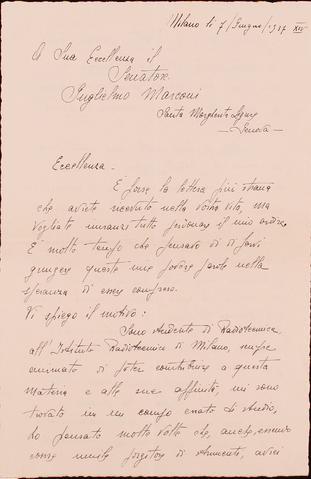 Milano li 7/Giugno/1937 XV°
A Sua Eccellenza il
Senatore
Guglielmo Marconi
Santa Margherita Ligure
— Genova —
Eccellenza.
È forse la lettera più strana
che avrete ricevuto nella vostra vita, ma
vogliate innanzi tutto perdonare il mio ardire.
È molto tempo che pensavo di farvi
giungere queste mie povere parole nella
speranza di essere compreso.
Vi spiego il motivo:
Sono studente di Radiotecnica
all'Istituto Radiotecnico di Milano,
animato di poter contribuire a questa
materia e alle sue affinità, mi sono
trovato in un campo errato di studio,
ho pensato molte volte che, anche, essendo
come umile forgitore di strumenti, avrei